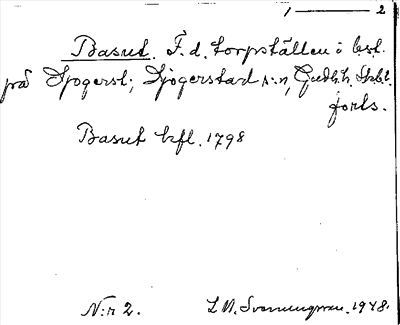 1 — 2
Basut. F.d. torpställen i best.
på Sjogerst; Sjögerstad s:n, Gudh. h. Skbl.
forts.
Basut kfl. 1798
N:r 2. L M. Svenungsson. 1948.